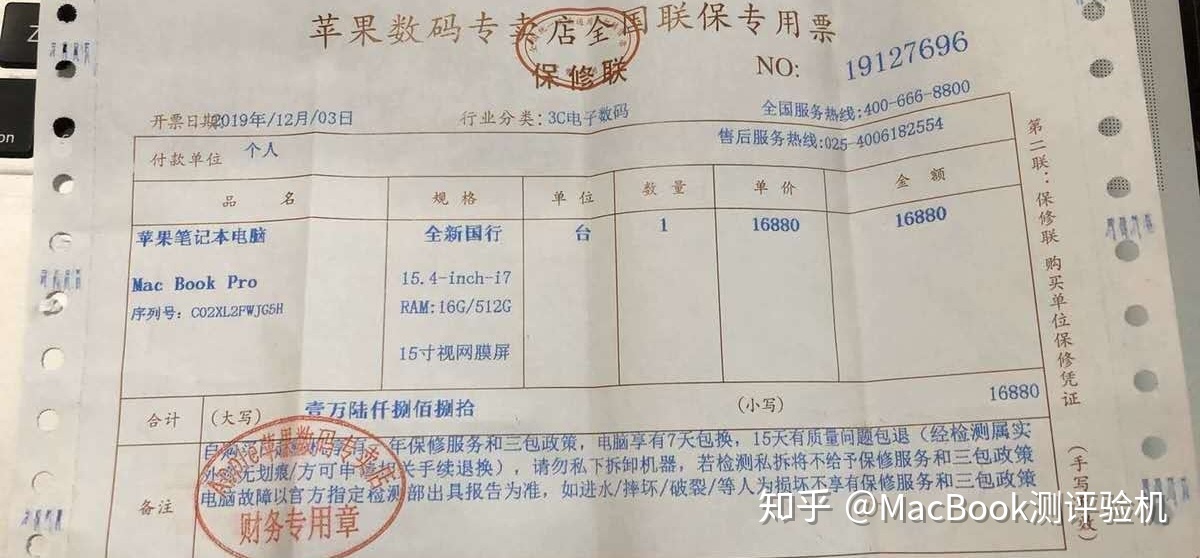 苹果数码专卖店全国联保专用票
保修联
NO: 19127696
开票日期2019年/12月/03日
行业分类:3C电子数码
全国服务热线:400-666-8800
售后服务热线:025-4006182554
付款单位 个人
品 名 规 格 单 位 数 量 单 价 金 额
苹果笔记本电脑 全新国行 台 1 16880 16880
Mac Book Pro 15.4-inch-i7
序列号: C02XL2FWJG5H RAM:16G/512G
15寸视网膜屏
合计 (大写) 壹万陆仟捌佰捌拾 (小写) 16880
备注
自购买 年保修服务和三包政策，电脑享有7天包换，15天有质量问题包退（经检测属实
无划痕/方可申 关手续退换），请勿私下拆卸机器，若检测私拆将不给予保修服务和三包政策
电脑故障以官方指定检测部出具报告为准，如进水/摔坏/破裂/等人为损坏不享有保修服务和三包政策
苹果数码专卖店
财务专用章
第二联：保修联 购买单位保修凭证
(手写 效)
on
知乎 @MacBook测评验机